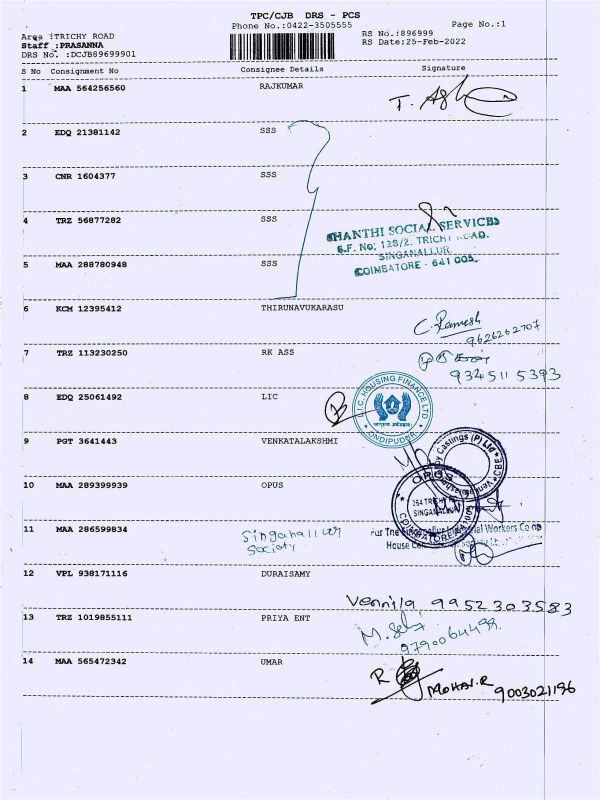 TPC/CJB DRS - PCS
Phone No.:0422-3505555
Page No.:1
Area :TRICHY ROAD
Staff :PRASANNA
DRS No. :DCJB89699901
RS No.:896999
RS Date:25-Feb-2022
S No Consignment No Consignee Details Signature
1 MAA 564256560 RAJKUMAR
2 EDQ 21381142 SSS
3 CNR 1604377 SSS
4 TRZ 56877282 SSS
SHANTHI SOCIAL SERVICES
S.F. No: 128/2. TRICHY ROAD.
SINGANALLUR.
COIMBATORE - 641 005.
5 MAA 288780948 SSS
6 KCM 12395412 THIRUNAVUKARASU
C. Ramesh
9626262707
7 TRZ 113230250 RK ASS
9345115393
8 EDQ 25061492 LIC
L.I.C. HOUSING FINANCE LTD
ONDIPUDUR
9 PGT 3641443 VENKATALAKSHMI
Castings (P) Ltd
CBE
10 MAA 289399939 OPUS
OPUS
264 TRICHY
SINGANALLUR
COIMBATORE
11 MAA 286599834
Singanallur
Society
Workers Co op
House
12 VPL 938171116 DURAISAMY
Vennila 9952303583
13 TRZ 1019855111 PRIYA ENT
9790064498
14 MAA 565472342 UMAR
MOHAN.R
9003021196